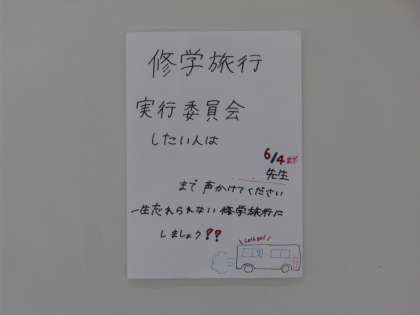 修学旅行
実行委員会
したい人は
6/4まで
先生
まで声かけてください
一生忘れられない修学旅行に
しましょう!!
Let's go!